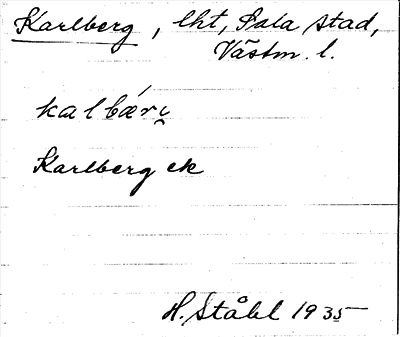 Karlberg, lht, Sala stad,
Västm. l.
kalbǽri̯
Karlberg ek
H. Ståhl 1935